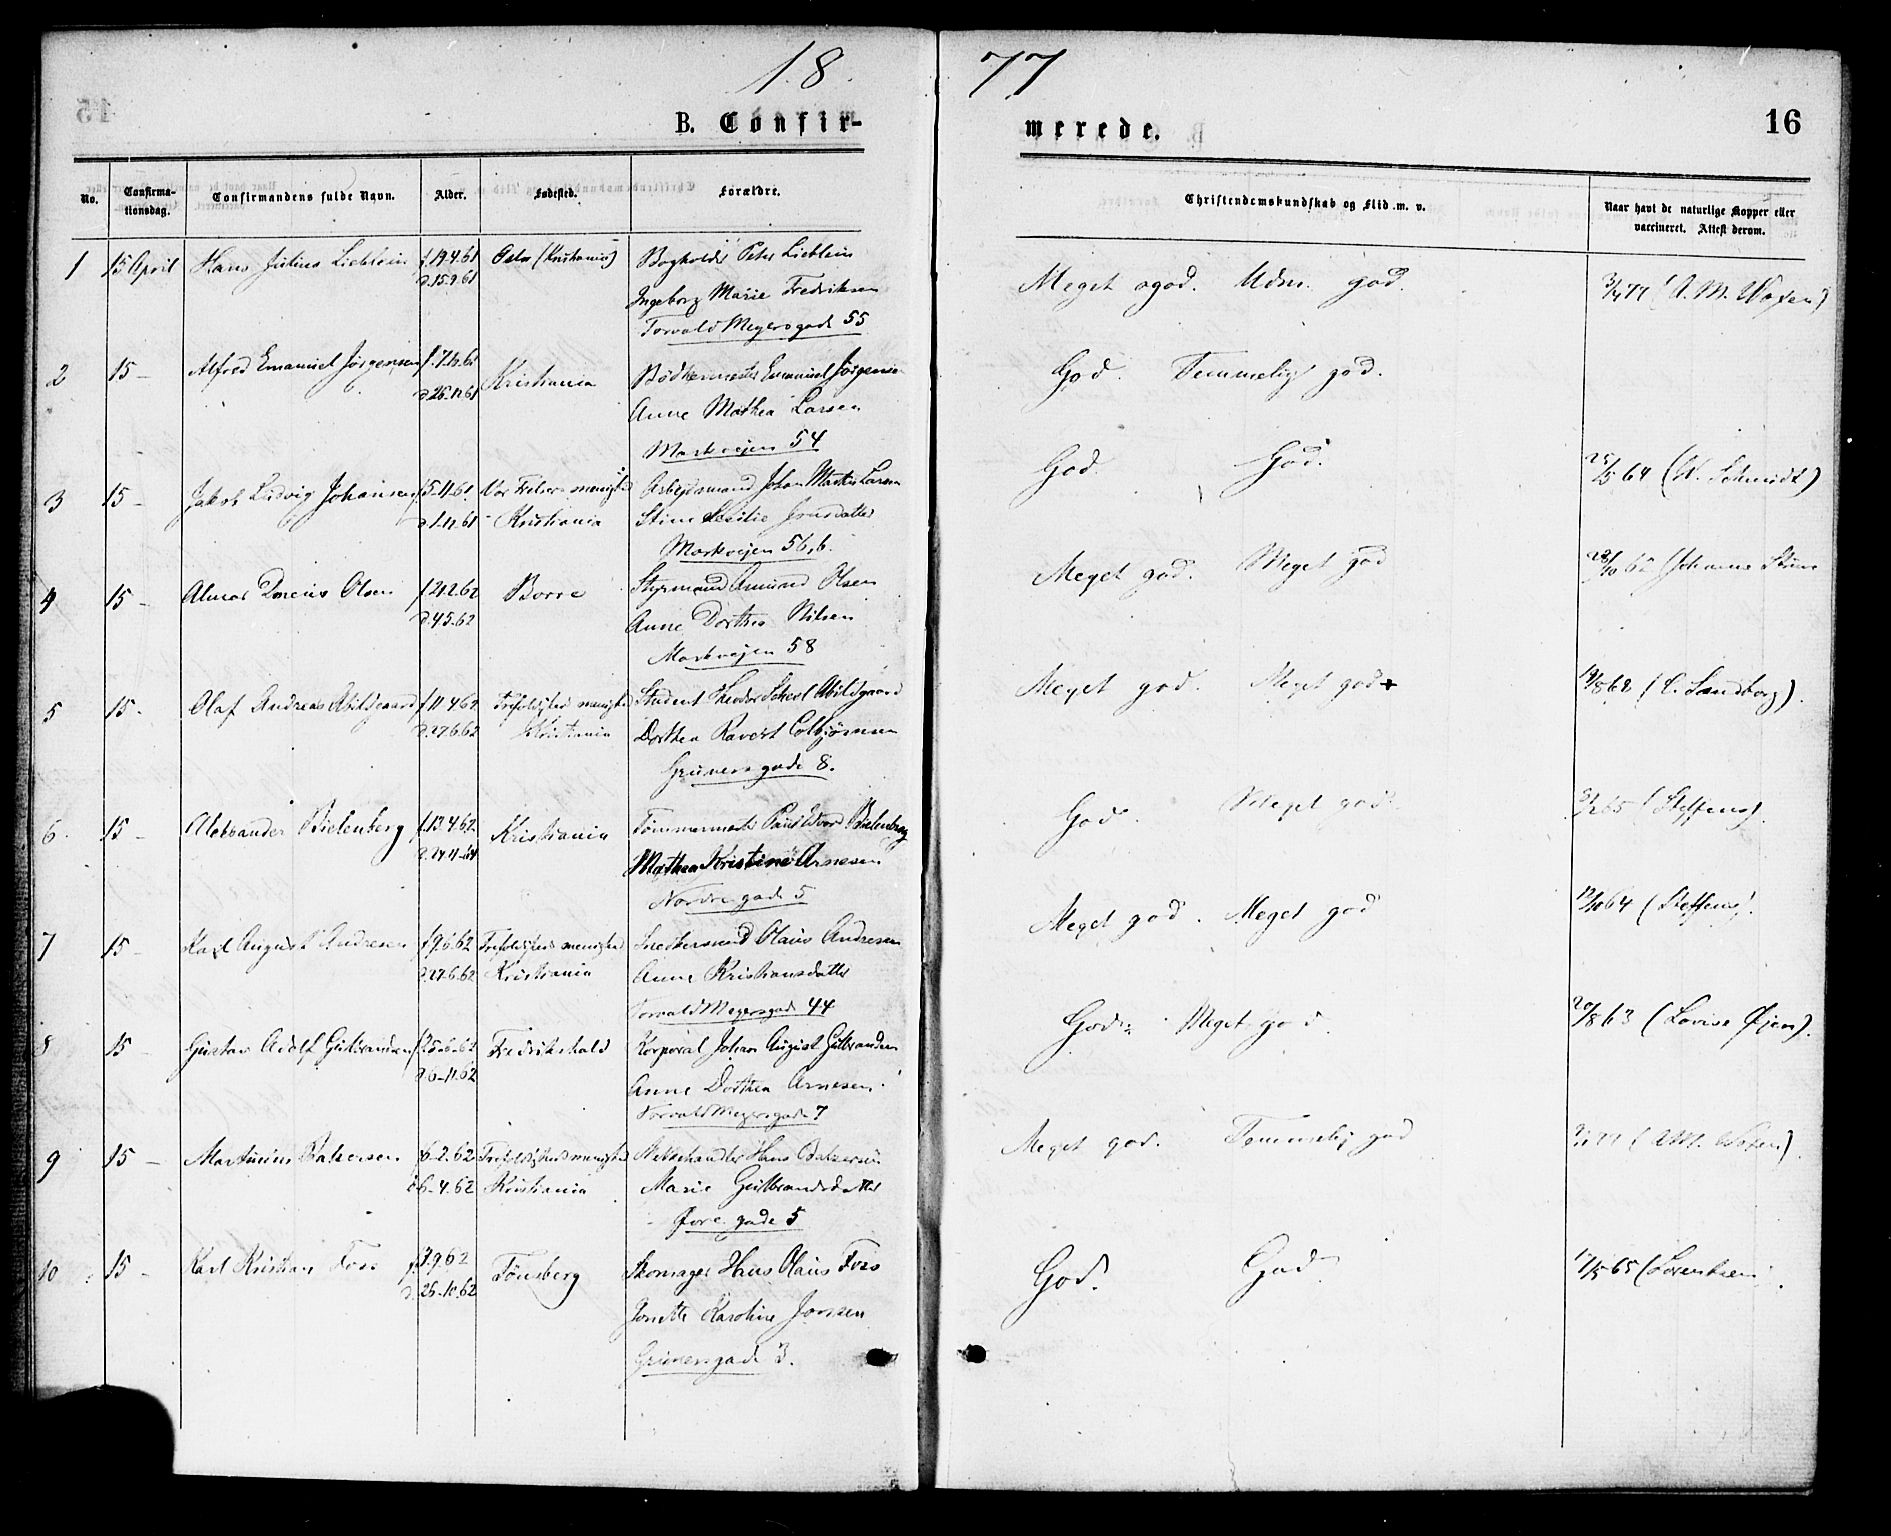 18 77
B. Confir- merede. 16
No. Confirma-tionsdag. Confirmandens fulde Navn. Alder. Fødested. Forældre. Christendomskundskab og Flid m. v. Naar havt de naturlige Kopper eller vaccineret. Attest derom.
1 15 April Hans Julius Lieblein f. 19.4.61 Oslo (Kristiania) Bogholder Peter Lieblein
d. 15.9.61 Ingeborg Marie Fredriksen Meget god. Udm. god. 3/4 77 (A. M. Woxen)
Torvald Meyersgade 55
2 15 – Alfred Emanuel Jørgensen Kristiania Bødkermester Emanuel Jørgensen God. Temmelig god.
d. 26.12.61 Anne Mathea Larsen
Markveien 54
3 15 – Jakob Ludvig Johansen f. 5.11.61 Vor Frelsers menighed Arbejdsmand Johan Martin Larsen God. God. 25/5 64 (N. Schmidt)
d. 1.12.61 Kristiania Stine
Markveien 56,b.
4 15 – Olsen f. 21.2.62 Borre Styrmand Amund Olsen Meget god. Meget god
d. 4.5.62 Anne Dorthea Nilsen
Markveien 58
5 15 – Olaf Andreas Abildgaard f. 11.4.62 Trefoldighed menighed Student Theodor Abildgaard Meget god. Meget god + (C. Sandborg).
d. 27.6.62 Kristiania Dorthea Colbjørnsen
Grünersgade 8.
6 15 – Aleksander Bielenberg f. 13.4.62 Kristiania Tømmermand Bielenberg God. Meget god. (Steffens).
Mathea Kristine Arnesen
Nordregade 5
7 15 – Karl August Andresen f. 9.6.62 Trefoldigheds menighed Snedkersvend Olaus Andresen Meget god. Meget god 12/10 64 (Steffens).
d. 27.6.62 Kristiania Anne Kristiansdatter
Torvald Meyersgade 44
8 15 – Gustav Adolf Gulbrandsen f. 25.6.62 Fredrikshald Korporal Johan August Gulbrandsen God. Meget god. 20/8 63 (Lovise Øjen).
d. 6.11.62 Anne Dorthea Arnesen
Torvald Meyersgade 7
9 15 – Martinius Balzersen f. 6.2.62 Trefoldigheds menighed Hans Balzersen Meget god. Temmelig god (A. M. Woxen).
d. 6.4.62 Kristiania Marie Gulbrandsdatter
Øvregade 5
10 15 – Karl Kristian Foss Tønsberg Skomager Hans Olaus Foss God. God. 17/5 65 (Lorentzen).
d. 26.10.62 Jonette Karoline Jonsen
Grünersgade 3.